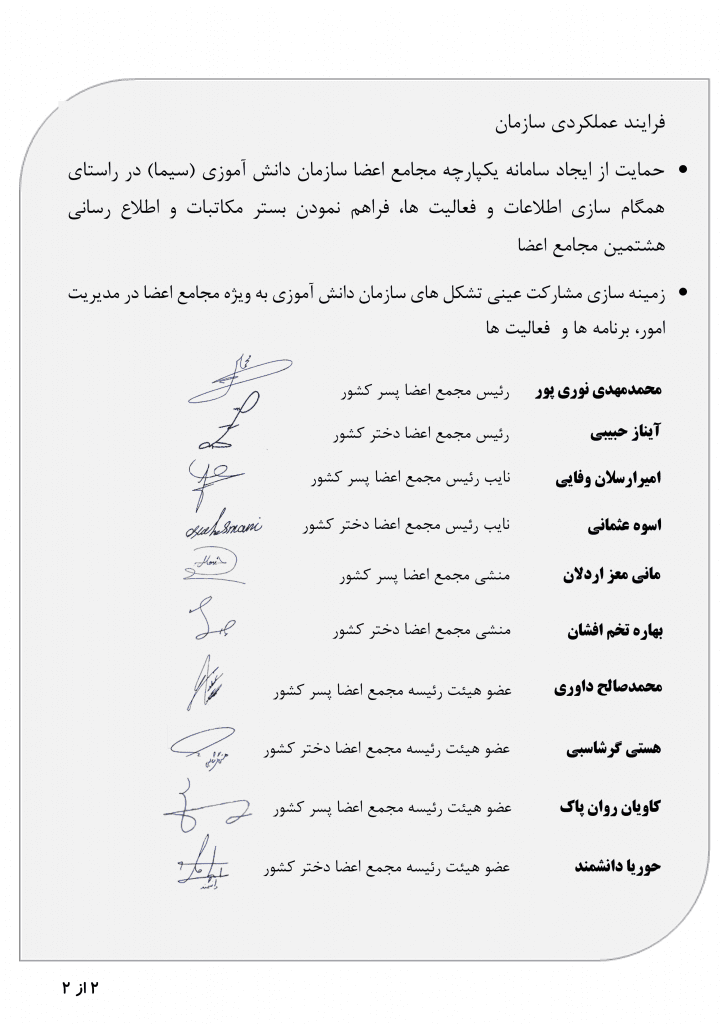 فرایند عملکردی سازمان
• حمایت از ایجاد سامانه یکپارچه مجامع اعضا سازمان دانش آموزی (سیما) در راستای
همگام سازی اطلاعات و فعالیت ها، فراهم نمودن بستر مکاتبات و اطلاع رسانی
هشتمین مجامع اعضا
• زمینه سازی مشارکت عینی تشکل های سازمان دانش آموزی به ویژه مجامع اعضا در مدیریت
امور، برنامه ها و فعالیت ها
محمدمهدی نوری پور رئیس مجمع اعضا پسر کشور
آیناز حبیبی رئیس مجمع اعضا دختر کشور
امیرارسلان وفایی نایب رئیس مجمع اعضا پسر کشور
اسوه عثمانی نایب رئیس مجمع اعضا دختر کشور
مانی معز اردلان منشی مجمع اعضا پسر کشور
بهاره تخم افشان منشی مجمع اعضا دختر کشور
محمدصالح داوری عضو هیئت رئیسه مجمع اعضا پسر کشور
هستی گرشاسبی عضو هیئت رئیسه مجمع اعضا دختر کشور
کاویان روان پاک عضو هیئت رئیسه مجمع اعضا پسر کشور
حوریا دانشمند عضو هیئت رئیسه مجمع اعضا دختر کشور
۲ از ۲